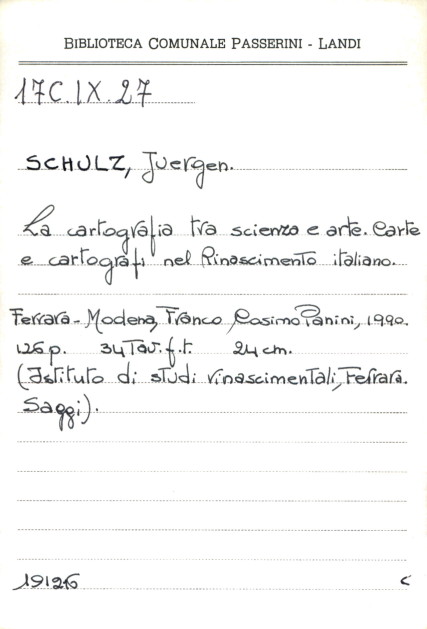 BIBLIOTECA COMUNALE PASSERINI - LANDI
17C.IX.27
SCHULZ, Juergen.
La cartografia tra scienza e arte. Carte
e cartografi nel Rinascimento italiano.
Ferrara - Modena, Franco Cosimo Panini, 1990.
126 p. 34 Tav. f.t. 24 cm.
(Istituto di studi rinascimentali, Ferrara.
Saggi).
191246 C